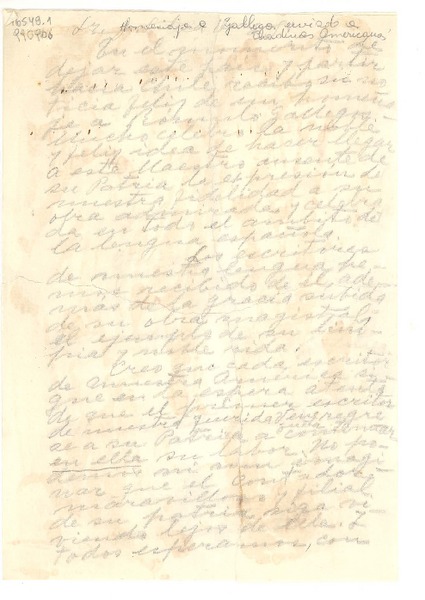 16549.1
Homenaje a Gallegos enviado a
990906
Cuadernos Americanos
En el momento de
dejar este país y partir
hacia Chile recibo su no
ticia feliz de un homena
je a Rómulo Gallegos.
Mucho celebro la noble
y feliz idea de hacer llegar
a este Maestro ausente de
su Patria la expresión de
nuestra fidelidad a su
obra admirada y
da en todo el ámbito de
la lengua española.
Los escritores
de nuestra lengua he
mos recibido de él, ade
más de la gracia subida
de su obra magistral,
el ejemplo de su lim
pia y noble vida.
Creo que cada escritor
de nuestra América
que en la espera
de que el primer escritor
de nuestra querida
se a su Patria a continuar
en ella su labor. No po
demos ni aun imagi
nar que el Contador
maravilloso y filial
de su patria siga vi
viendo lejos de ella. Y
todos esperamos, con